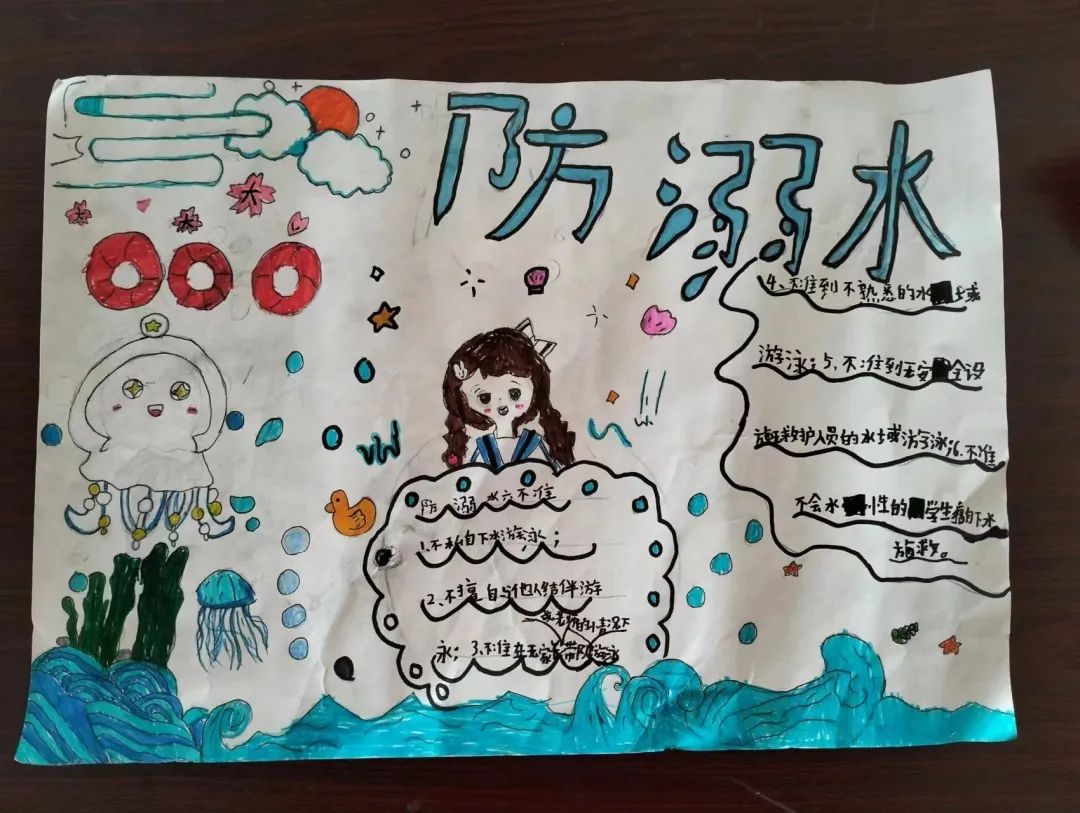 防溺水
防溺水六不准
1.不私自下水游泳;
2、不擅自与他人结伴游
泳; 3、不准在无家长
老师的情况下
4、不准到不熟悉的水域
游泳;5、不准到无安全设
施救护人员的水域游泳;6.不准
不会水性的学生擅自下水
施救。